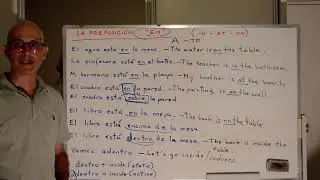 LA PREPOSICIÓN "EN" - (IN - AT - ON)
A - TO
El agua está en la mesa. - The water is on the table.
La profesora está en el baño. - The teacher is in the bathroom.
Mi hermano está en la playa - My brother is at the beach.
El cuadro está en la pared. - The painting is on the wall
El cuadro está sobre la pared
El libro está en la mesa. - The book is on the table
El libro está encima de la mesa
El libro está dentro de la mesa - The book is inside the table
Vamos adentro - Let's go inside / indoors
dentro = inside (static)
adentro = inside (active)